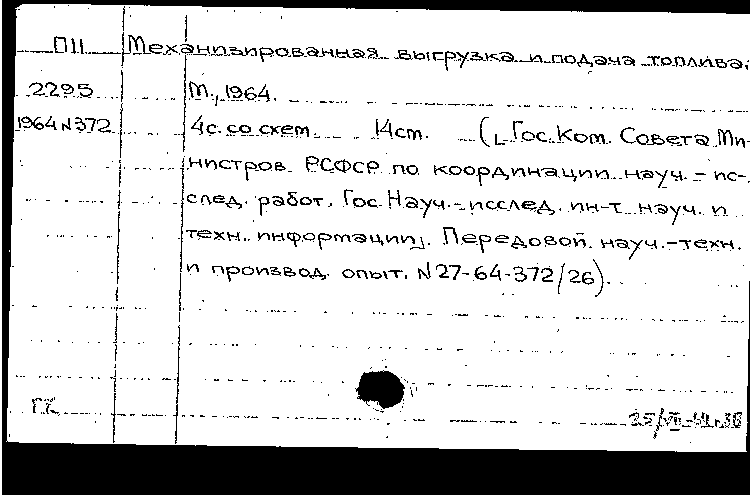 П11 Механизированная выгрузка и подача топлива.
2295 М., 1964.
1964 N372 4с. со схем. 14см. ([Гос. Ком. Совета Ми-
нистров РСФСР по координации науч.- ис-
след. работ. Гос. Науч.-исслед. ин-т науч. и
техн. информации]. Передовой науч.-техн.
и производ. опыт. N27-64-372/26).